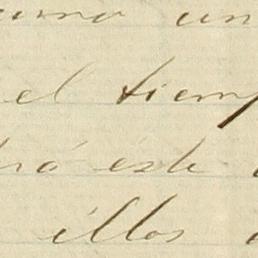 un
el tiemp
ró este
illos